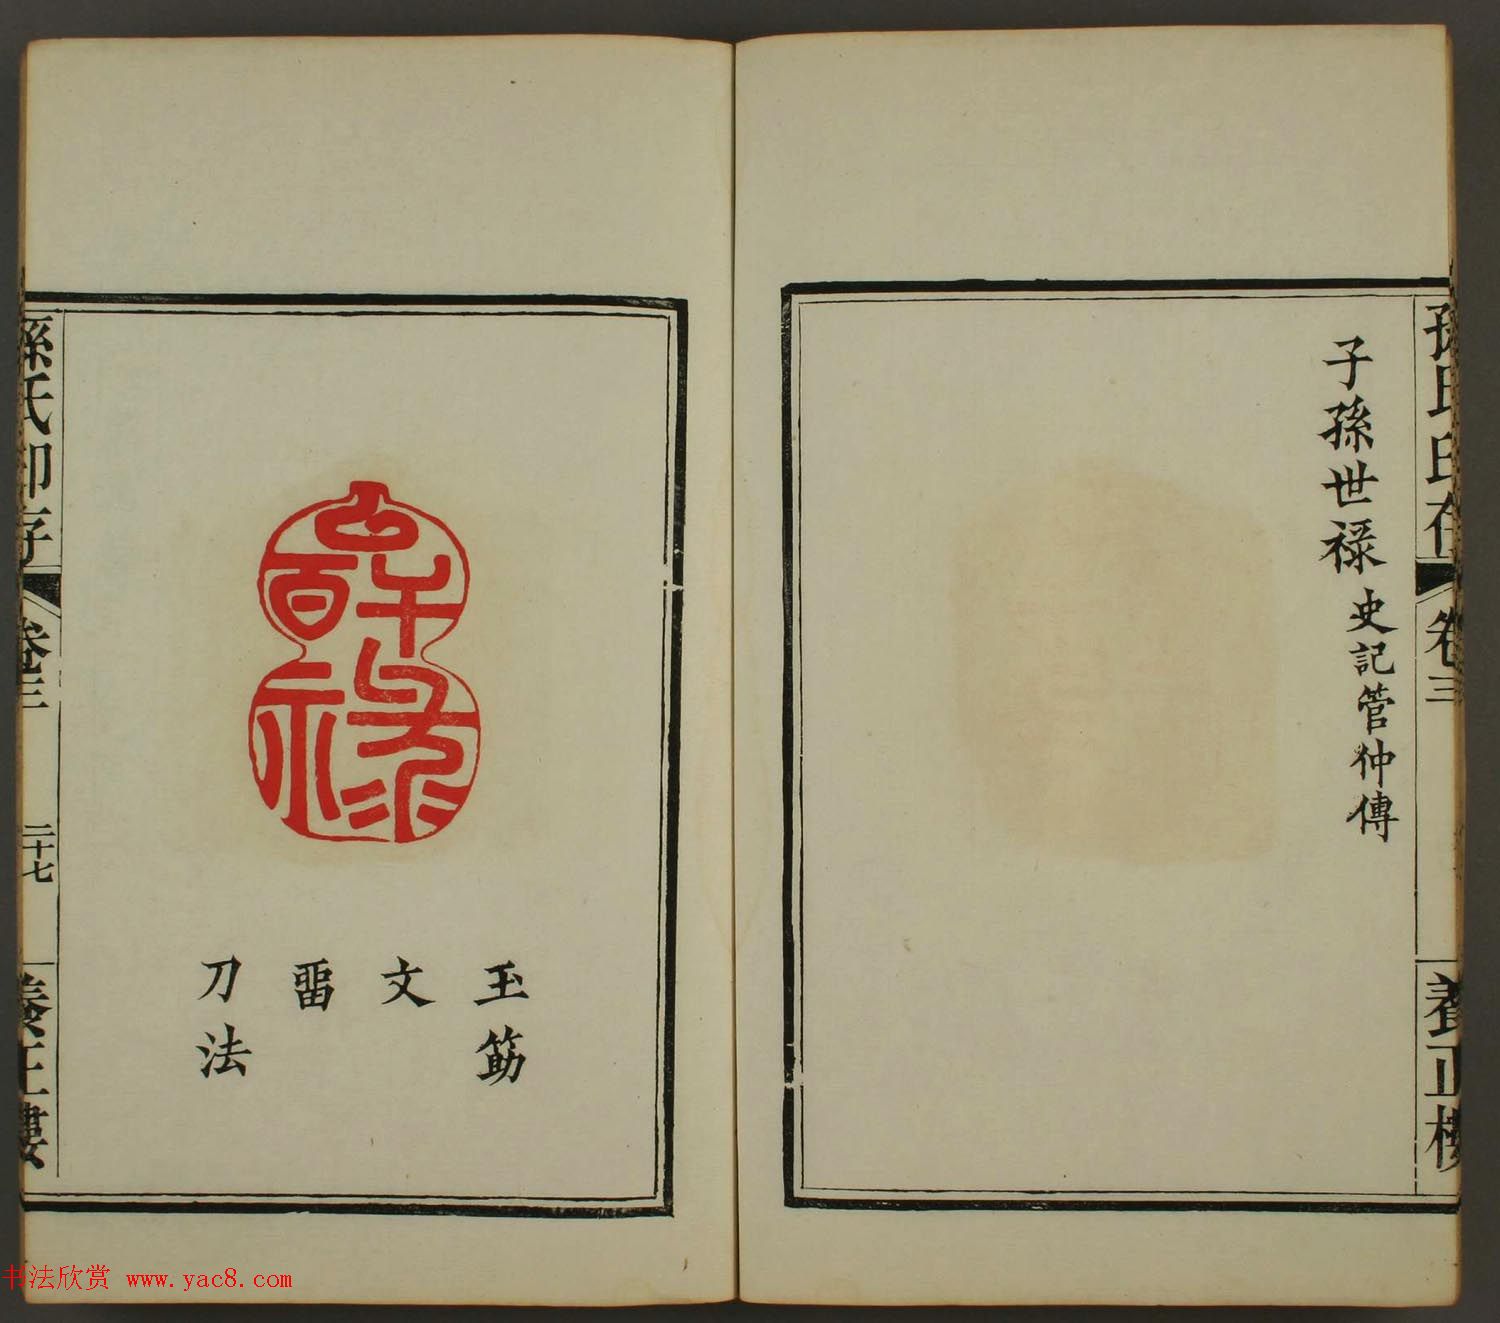 孫氏印存
卷三
養正樓
子孫世禄 史記管仲傳
百
禄
玉筯
文
畱
刀法
孫氏印存
卷三
二十七
養正樓
书法欣赏 www.yac8.com